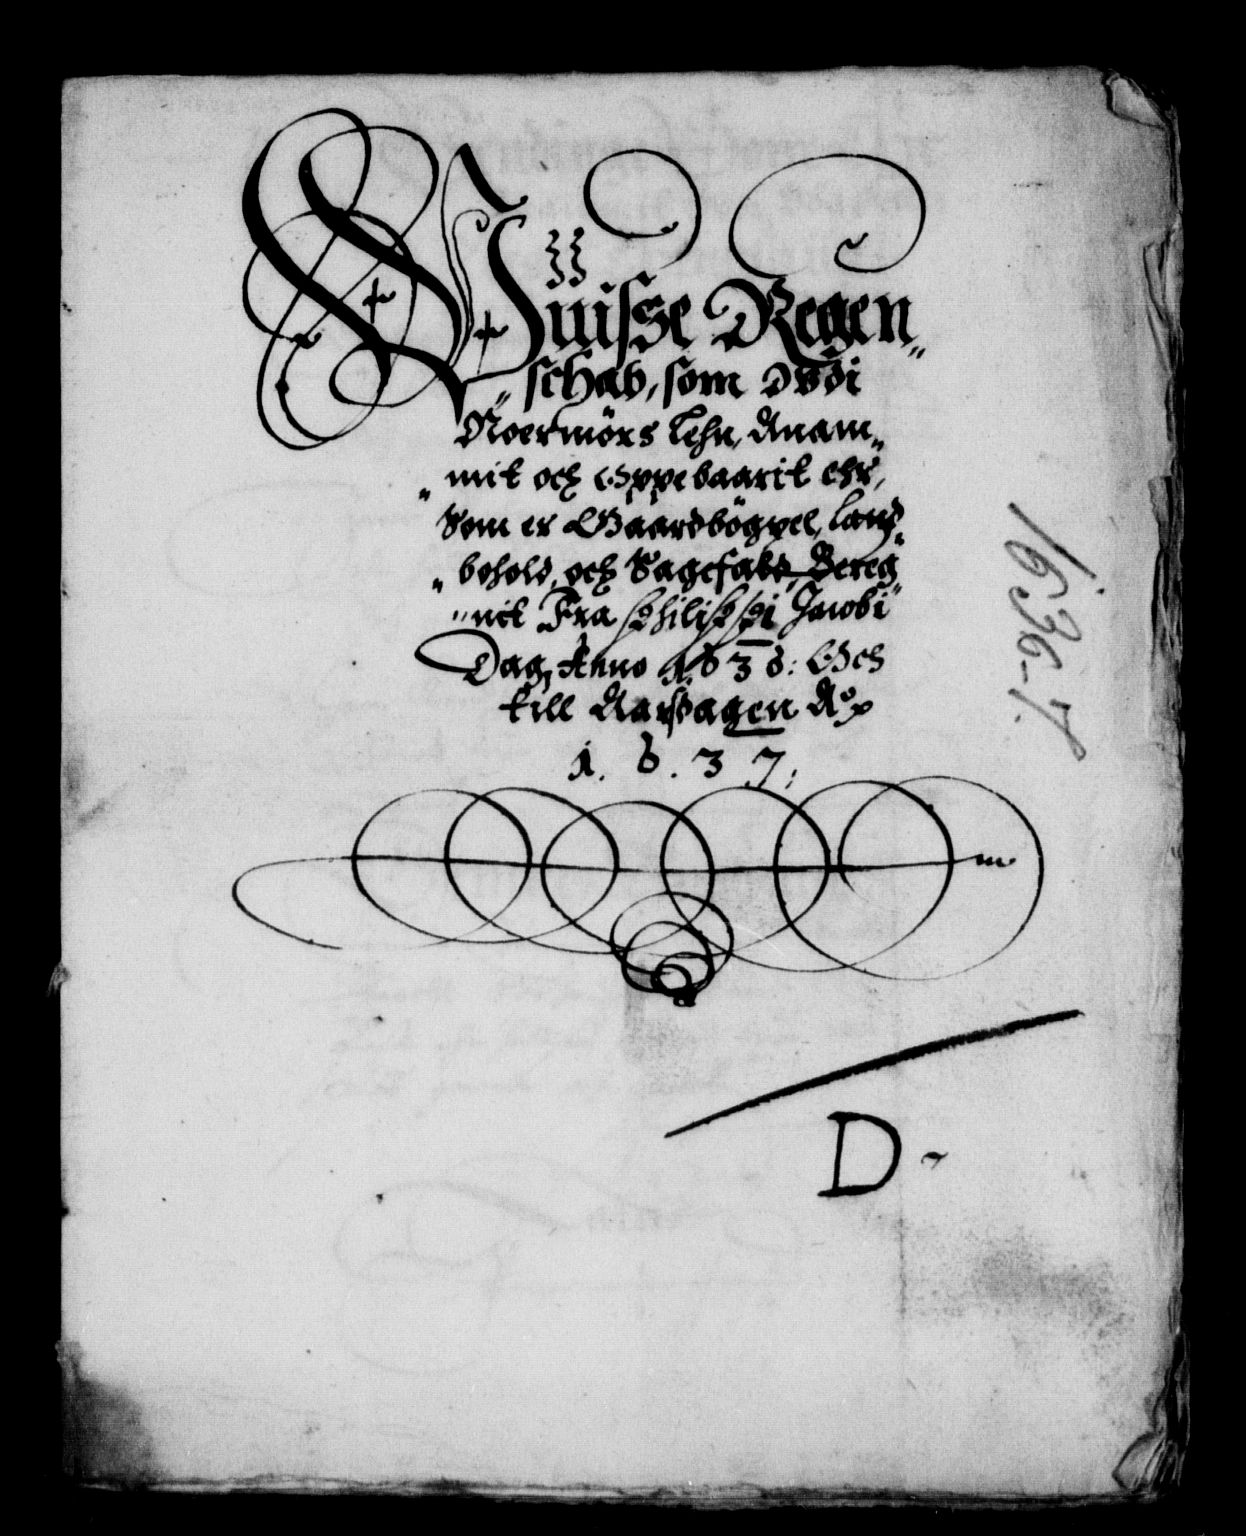 Wüisse Regen„
„schab, som vdi
Noermörs Lehn, Anam„
„mit och Oppebaarit ehr,
Som er Gaardbögxel, Land„
„bohold, och Sagefald, Bereg„
„nit Fra Philippi Jacobi
Dag, Anno 1636: Och
till Aarsdagen Aº
1. 6. 3 7;
D-
1636-7